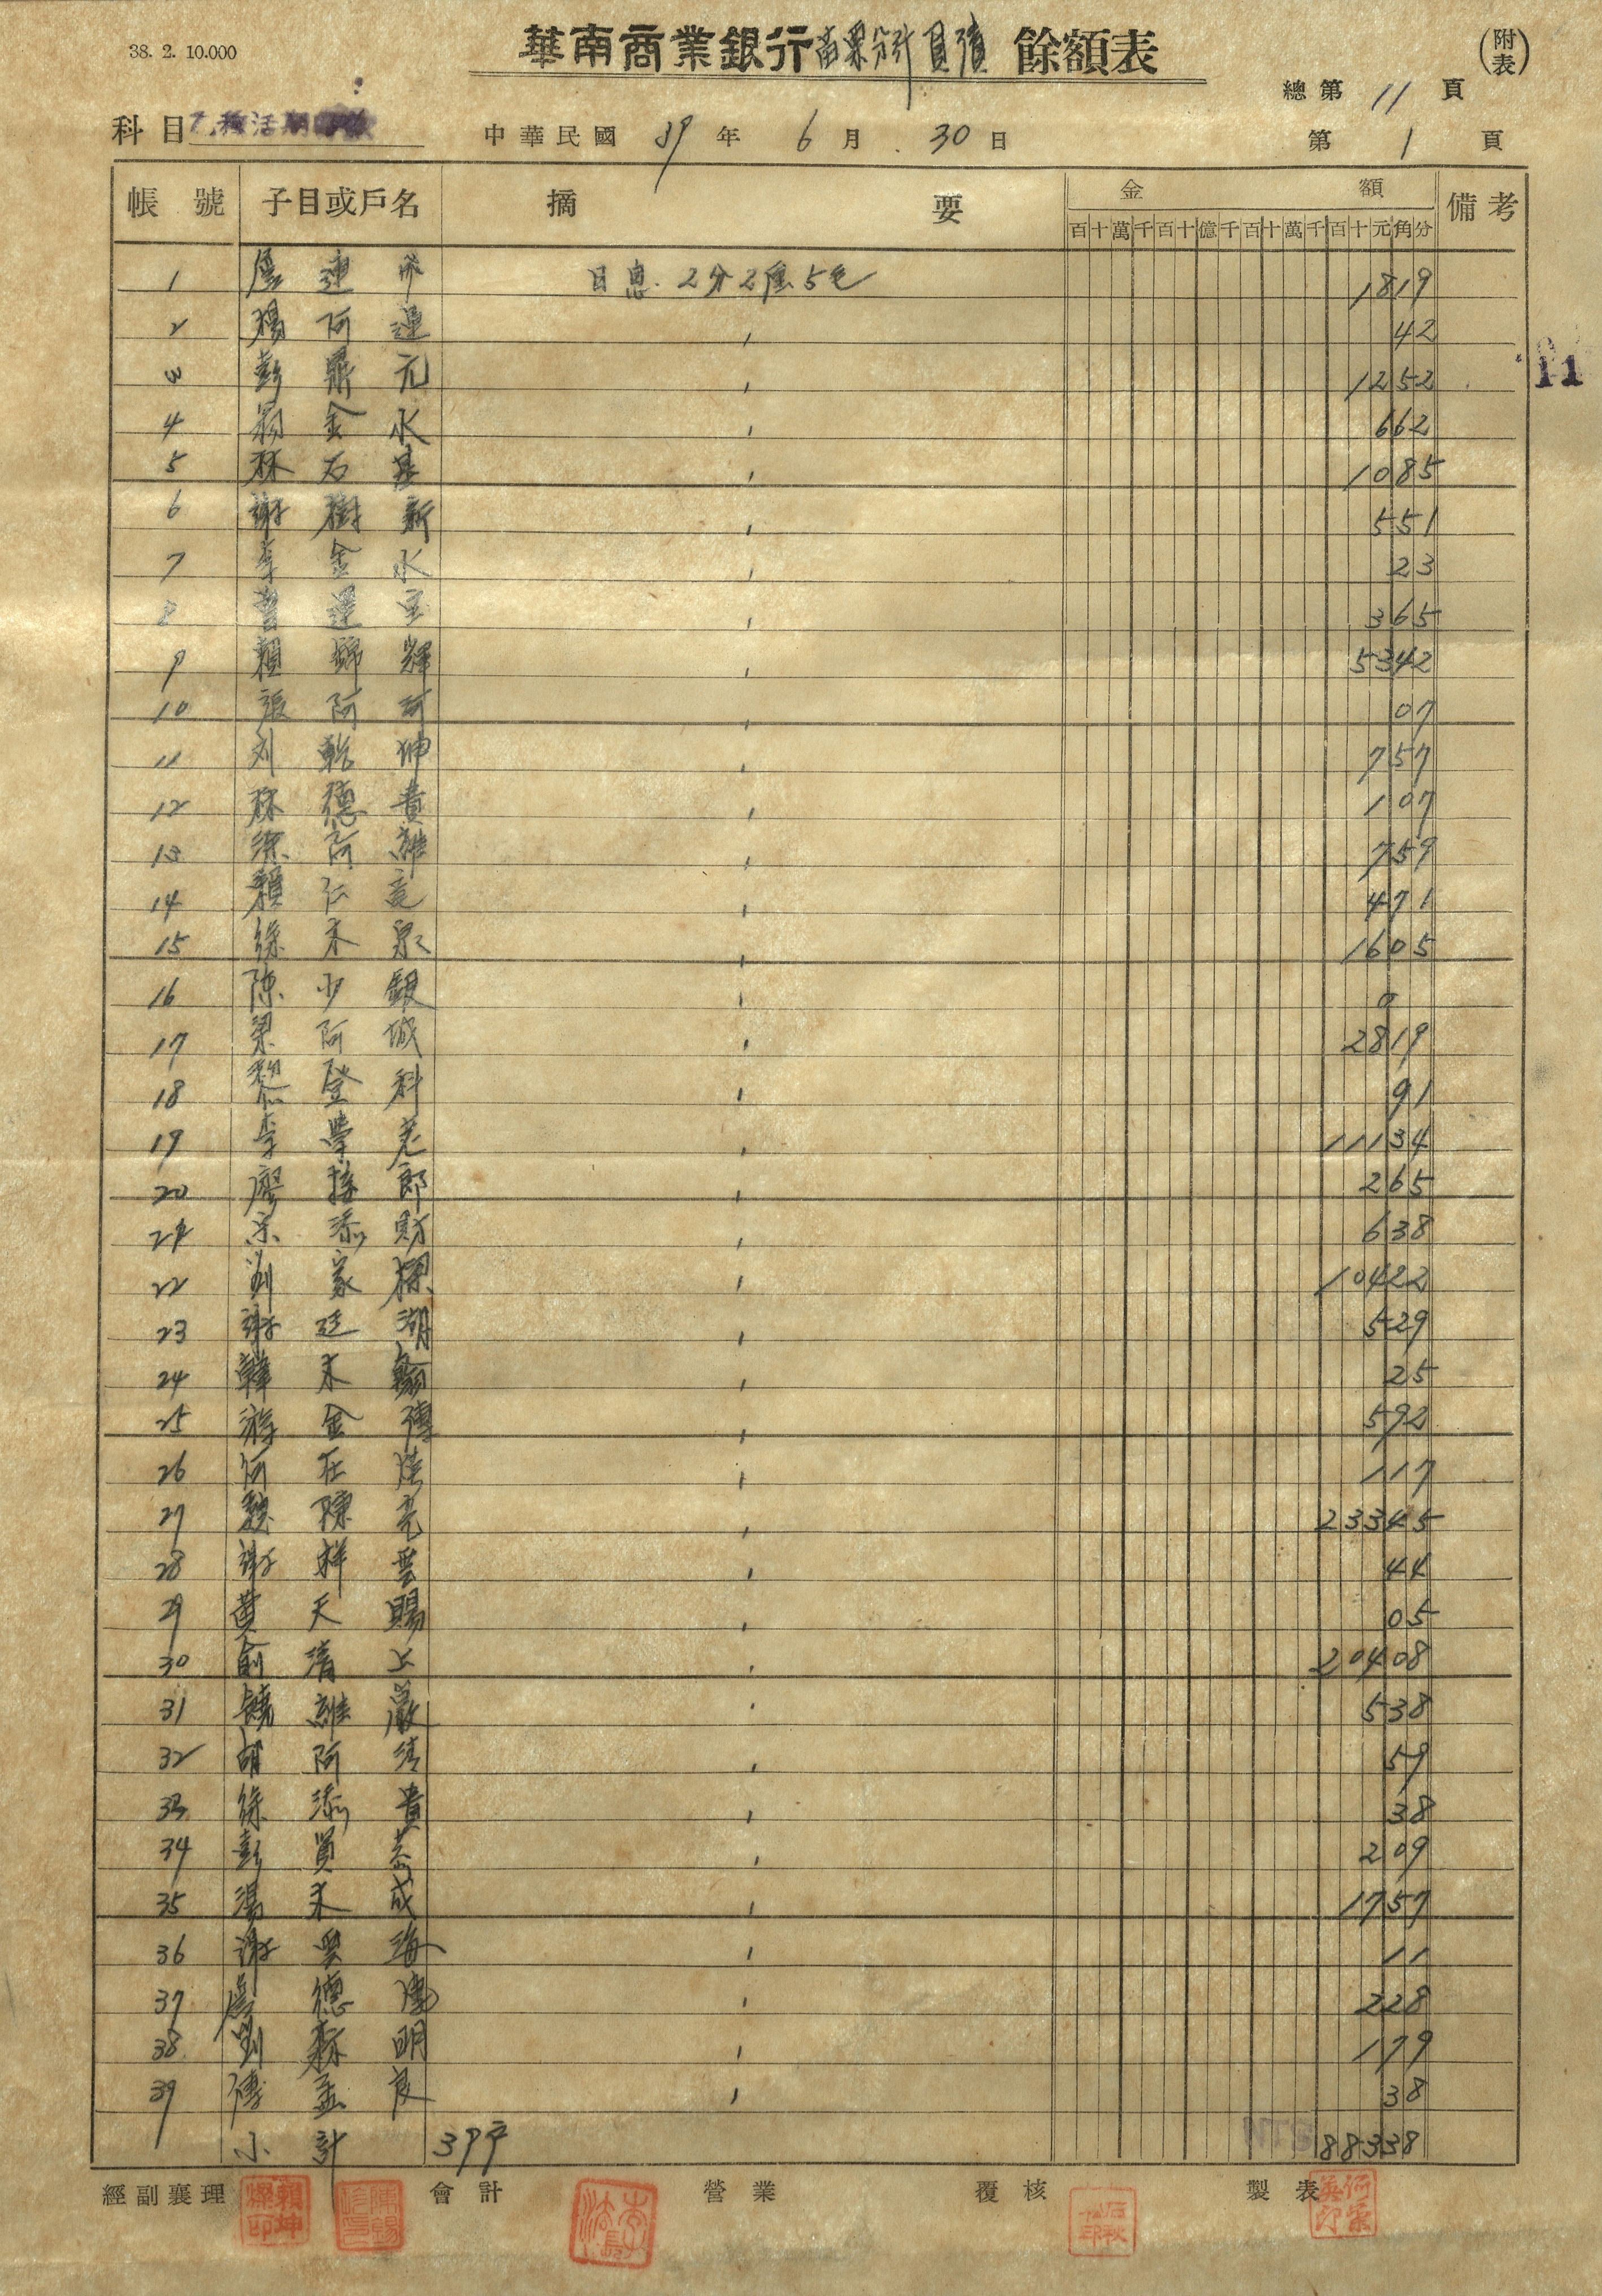 38. 2. 10.000
華南商業銀行苗栗分行負債餘額表
(附表)
總第 11 頁
科目 乙種活期存款
中華民國 39 年 6 月 30 日
第 1 頁
帳號 子目或戶名 摘要 金額 備考
百十萬千百十億千百十萬千百十元角分
1 連 日息 2分2厘5毛 1819
2 楊阿運 〃 42
3 彭鼎元 〃 1252
4 金水 〃 662
5 林石基 〃 1085
6 謝樹新 〃 551
7 李金水 〃 23
8 運 〃 365
9 賴錦輝 〃 5342
10 張阿 〃 07
11 刘乾坤 〃 757
12 林德貴 〃 107
13 徐阿維 〃 759
14 賴仁 〃 471
15 徐木泉 〃 1605
16 陳少銀 〃 0
17 梁阿城 〃 2819
18 黎登科 〃 91
19 李學老 〃 11134
20 廖接郎 〃 265
21 宋添財 〃 638
22 劉家標 〃 10422
23 謝廷湖 〃 529
24 韓木 〃 25
25 游金傳 〃 592
26 何在 〃 117
27 魏陳亮 〃 23345
28 謝祥雲 〃 44
29 黃天賜 〃 05
30 俞清 〃 20408
31 饒維嚴 〃 538
32 胡阿清 〃 59
33 徐添貴 〃 38
34 彭賢恭 〃 209
35 湯木成 〃 1757
36 謝海 〃 11
37 德 〃 228
38 劉森明 〃 179
39 傅孟良 〃 38
小計 39戶 NT$ 88338
11
經副襄理 會計 營業 覆核 製表